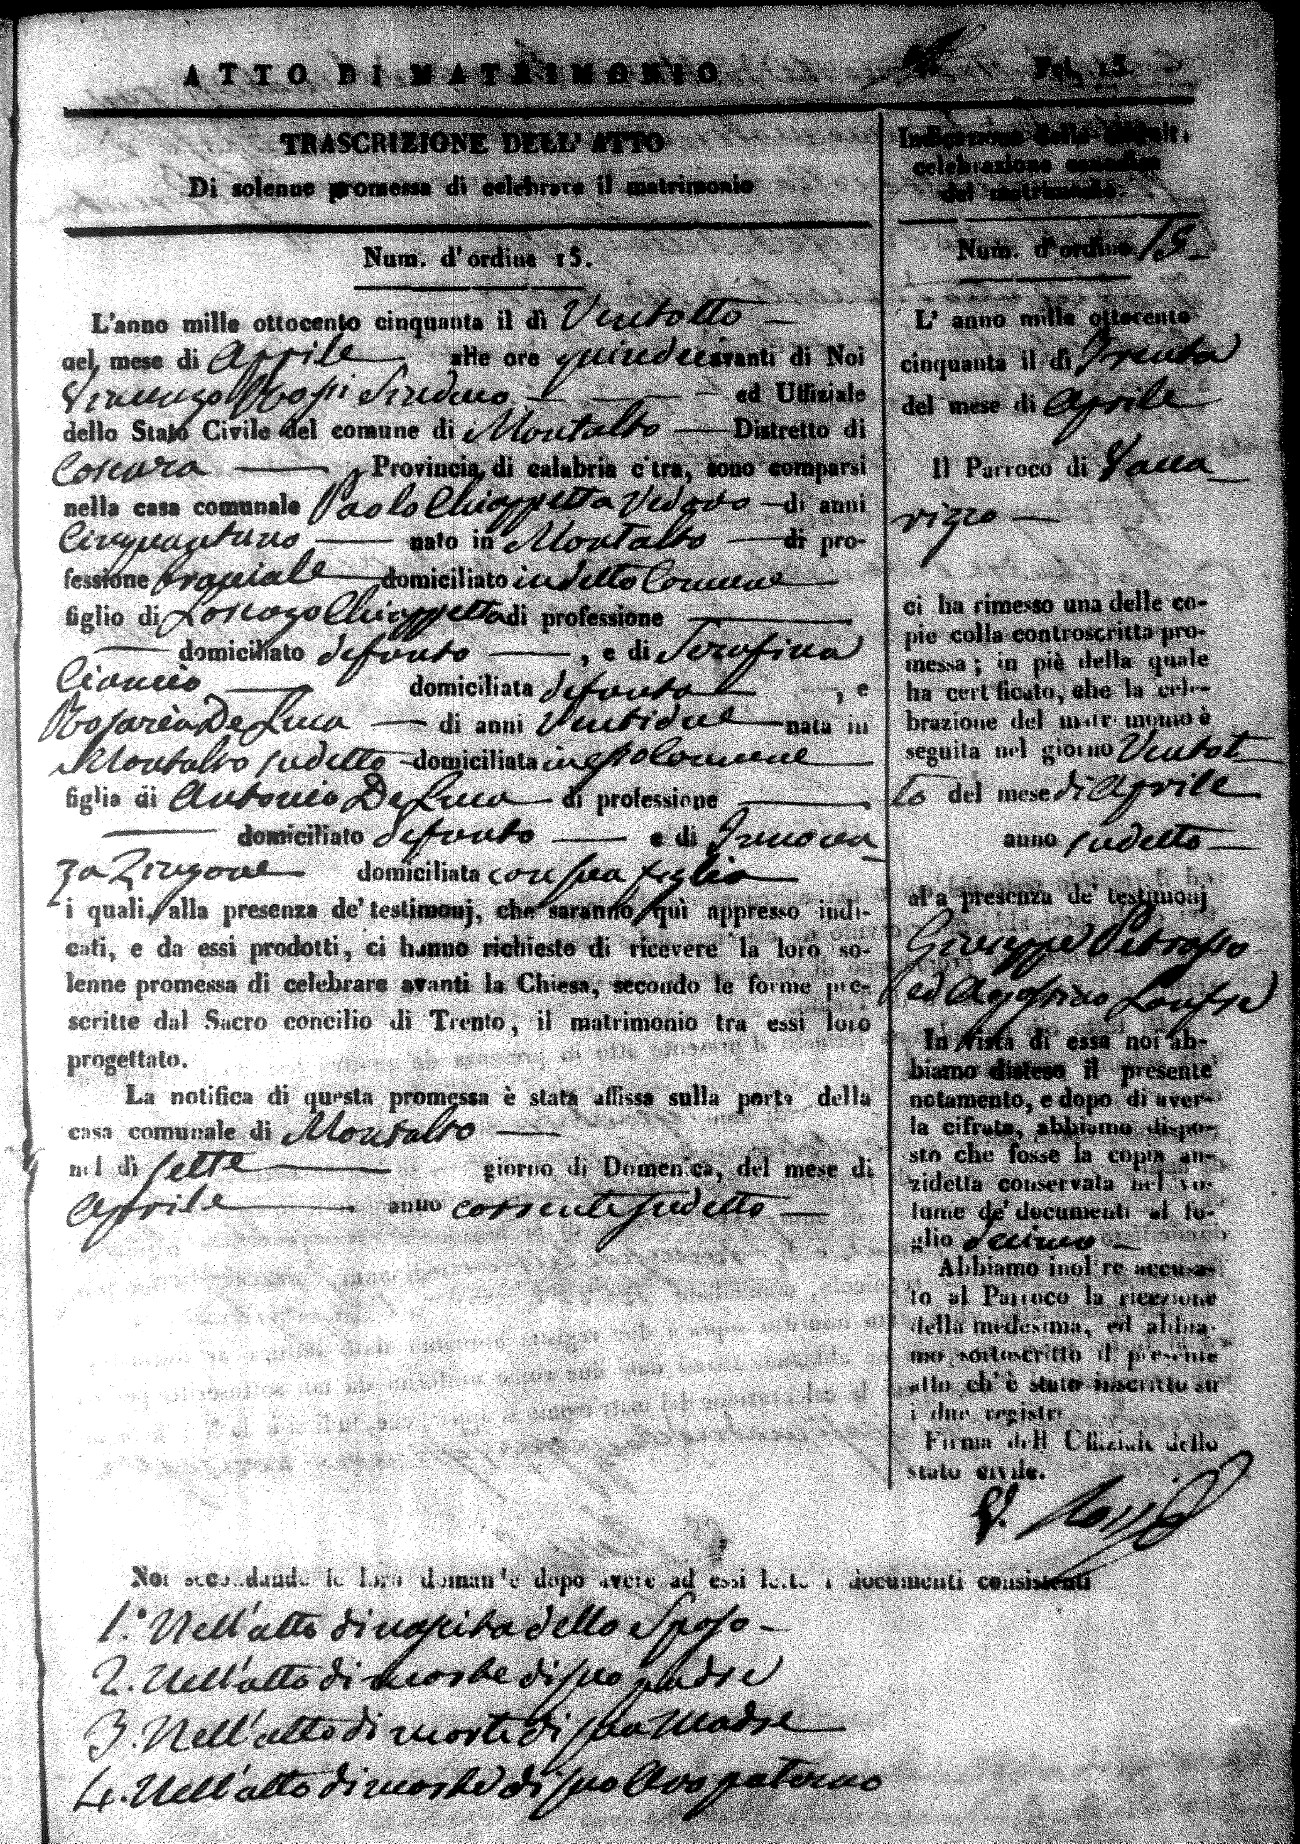 ATTO DI MATRIMONIO
Fol. 15.
TRASCRIZIONE DELL' ATTO
Di solenne promessa di celebrare il matrimonio
Num. d'ordine 15.
L'anno mille ottocento cinquanta il dì Ventotto
nel mese di Aprile alle ore quindeci avanti di Noi
Vincenzo Rossi Sindaco ed Uffiziale
dello Stato Civile del comune di Montalto Distretto di
Cosenza Provincia di calabria citra, sono comparsi
nella casa comunale Paolo Chiappetta Vedovo di anni
Cinquantuno nato in Montalto di pro-
fessione domiciliato in detto Comune
figlio di Lorenzo Chiappetta di professione
domiciliato defonto , e di Serafina
domiciliata defonta , e
Rosaria De Luca di anni Ventidue nata in
Montalto sudetto domiciliata in esso Comune
figlia di Antonio De Luca di professione
domiciliato defonto e di Innocen
za Zingone domiciliata con sua figlia
i quali, alla presenza de' testimonj, che saranno quì appresso indi-
cati, e da essi prodotti, ci hanno richiesto di ricevere la loro so-
lenne promessa di celebrare avanti la Chiesa, secondo le forme pre-
scritte dal Sacro concilio di Trento, il matrimonio tra essi loro
progettato.
La notifica di questa promessa è stata affissa sulla porta della
casa comunale di Montalto
nel dì sette giorno di Domenica, del mese di
Aprile anno corrente sudetto
Indicazione della seguit.
celebrazione canonica
del matrimonio.
Num. d'ordine 15
L' anno mille ottocento
cinquanta il dì Trenta
del mese di Aprile
Il Parroco di Vacca
rizzo
ci ha rimesso una delle co-
pie colla controscritta pro-
messa; in piè della quale
ha certificato, che la cele-
brazione del matrimonio è
seguita nel giorno Ventot
to del mese di Aprile
anno sudetto
alla presenza de' testimonj
Giuseppe
ed Agostino
In vista di essa noi ab-
biamo disteso il presente
notamento, e dopo di aver-
la cifrata, abbiamo dispo-
sto che fosse la copia an-
zidetta conservata nel vo-
lume de' documenti al fo-
glio decimo
Abbiamo inoltre accusa-
to al Parroco la ricezione
della medesima, ed abbia-
mo sottoscritto il presente
atto ch' è stato inscritto su
i due registri
Firma dell Uffiziale dello
stato civile.
V. Rossi
Noi secondando le loro domande dopo avere ad essi letto i documenti consistenti
1.° Nell'atto di nascita dello Sposo
2. Nell'atto di morte di suo padre
3. Nell'atto di morte di sua Madre
4. Nell'atto di morte di suo Avo paterno